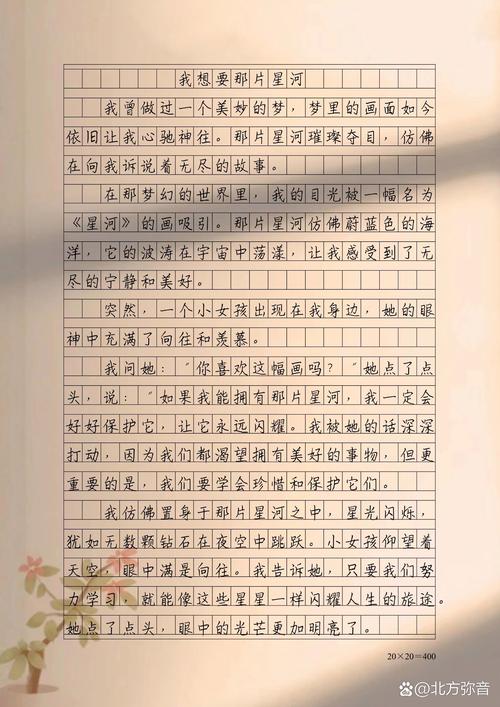 我想要那片星河
我曾做过一个美妙的梦，梦里的画面如今
依旧让我心驰神往。那片星河璀璨夺目，仿佛
在向我诉说着无尽的故事。
在那梦幻的世界里，我的目光被一幅名为
《星河》的画吸引。那片星河仿佛蔚蓝色的海
洋，它的波涛在宇宙中荡漾，让我感受到了无
尽的宁静和美好。
突然，一个小女孩出现在我身边，她的眼
神中充满了向往和羡慕。
我问她：“你喜欢这幅画吗？”她点了点
头，说：“如果我能拥有那片星河，我一定会
好好保护它，让它永远闪耀。我被她的话深深
打动，因为我们都渴望拥有美好的事物，但更
重要的是，我们要学会珍惜和保护它们。
我仿佛置身于那片星河之中，星光闪烁，
犹如无数颗钻石在夜空中跳跃。小女孩仰望着
天空，眼中满是向往。我告诉她，只要我们努
力学习，就能像这些星星一样闪耀人生的旅途。
她点了点头，眼中的光芒更加明亮了。
20×20=400
@北方弥音